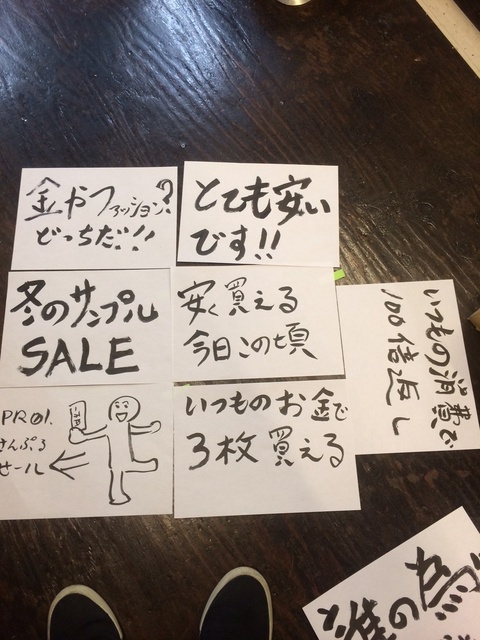 金かファッション?
どっちだ!!
とても安い
です!!
冬のサンプル
SALE
安く買える
今日この頃
いつもの消費で
100倍返し
PR01.
さんぷる
セール
いつものお金で
3枚買える
誰の為